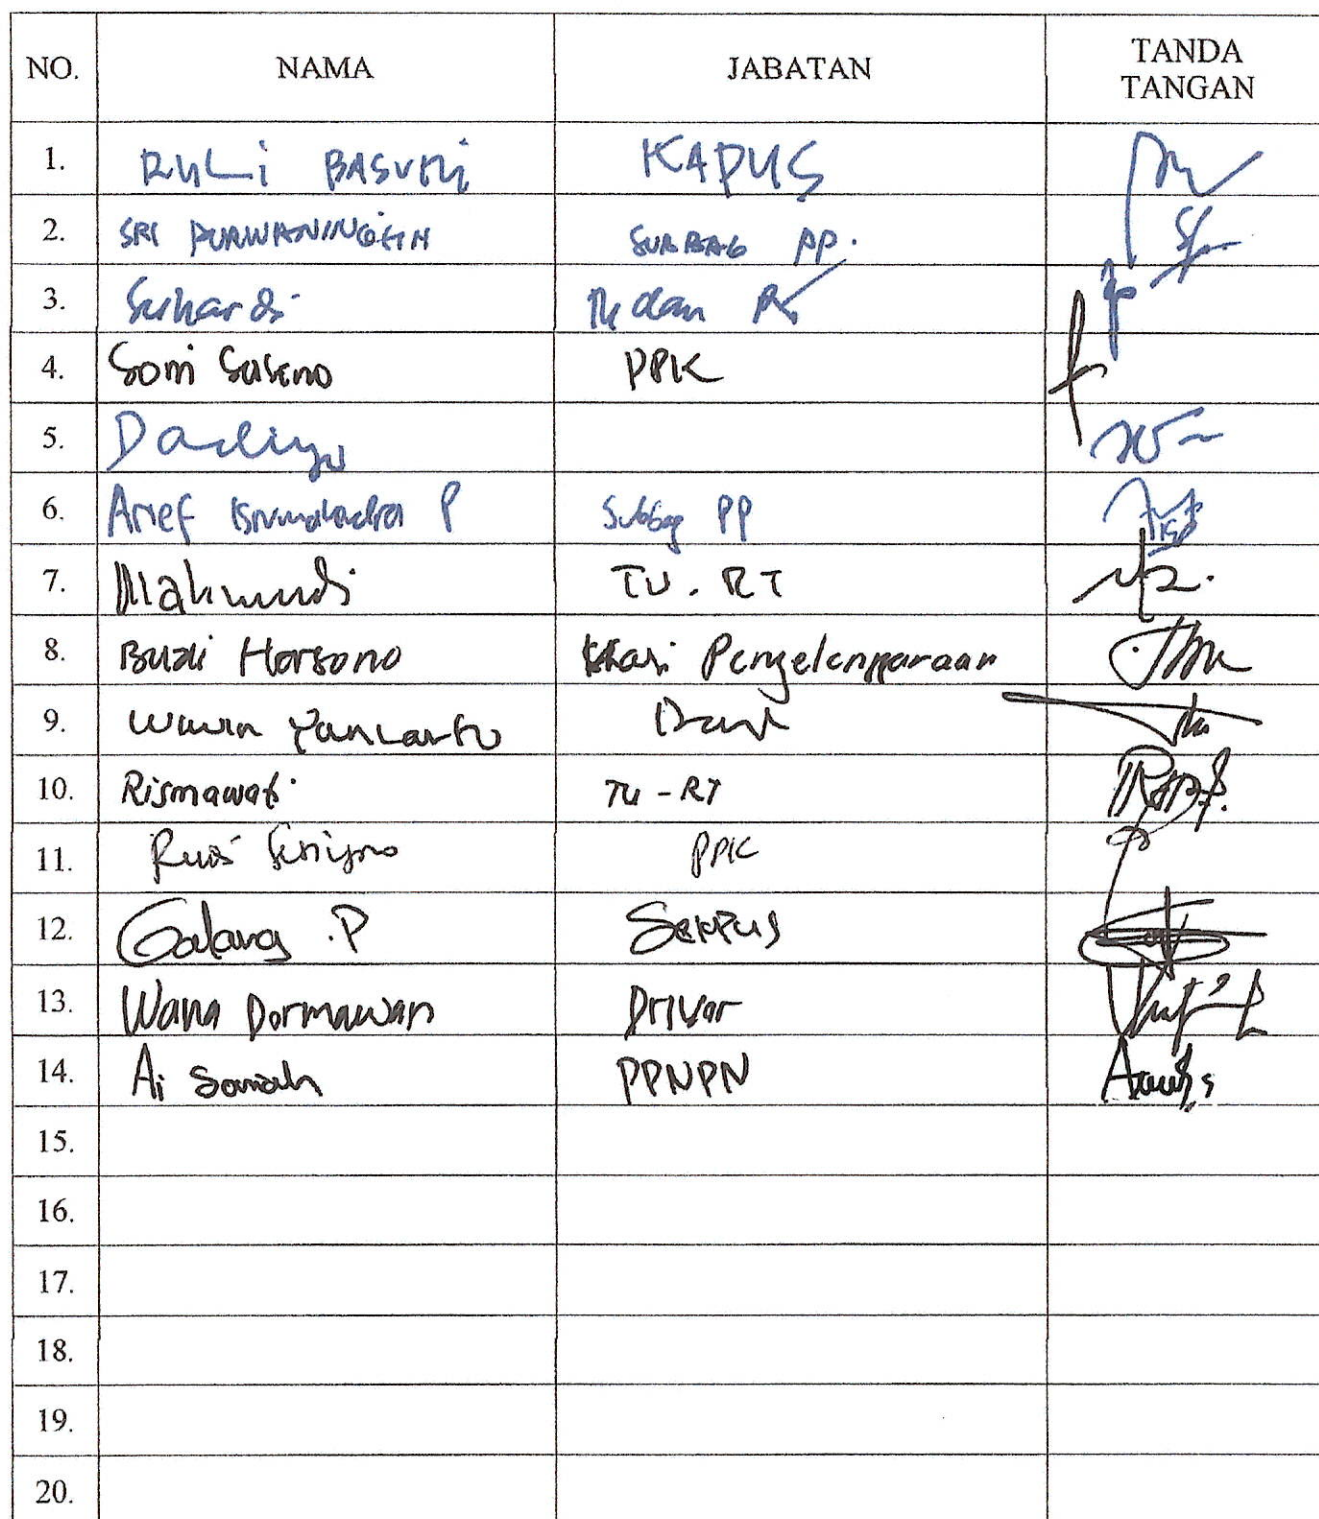 NO. NAMA JABATAN TANDA TANGAN
1. RULI BASUKI KAPUS
2. SRI PURWANINGSIH SUBBAG PP.
3. Suhardi TU dan
4. Soni Saseno PPK
5.
6. Arief P Subbag PP
7. Mahmudi TU. RT
8. Budi Harsono Penyelenggaraan
9. Wawan
10. Rismawati TU - RT
11. PPK
12. Galang .P Serpus
13. Wana Dormawan Drivar
14. Ai Sanah PPNPN
15.
16.
17.
18.
19.
20.